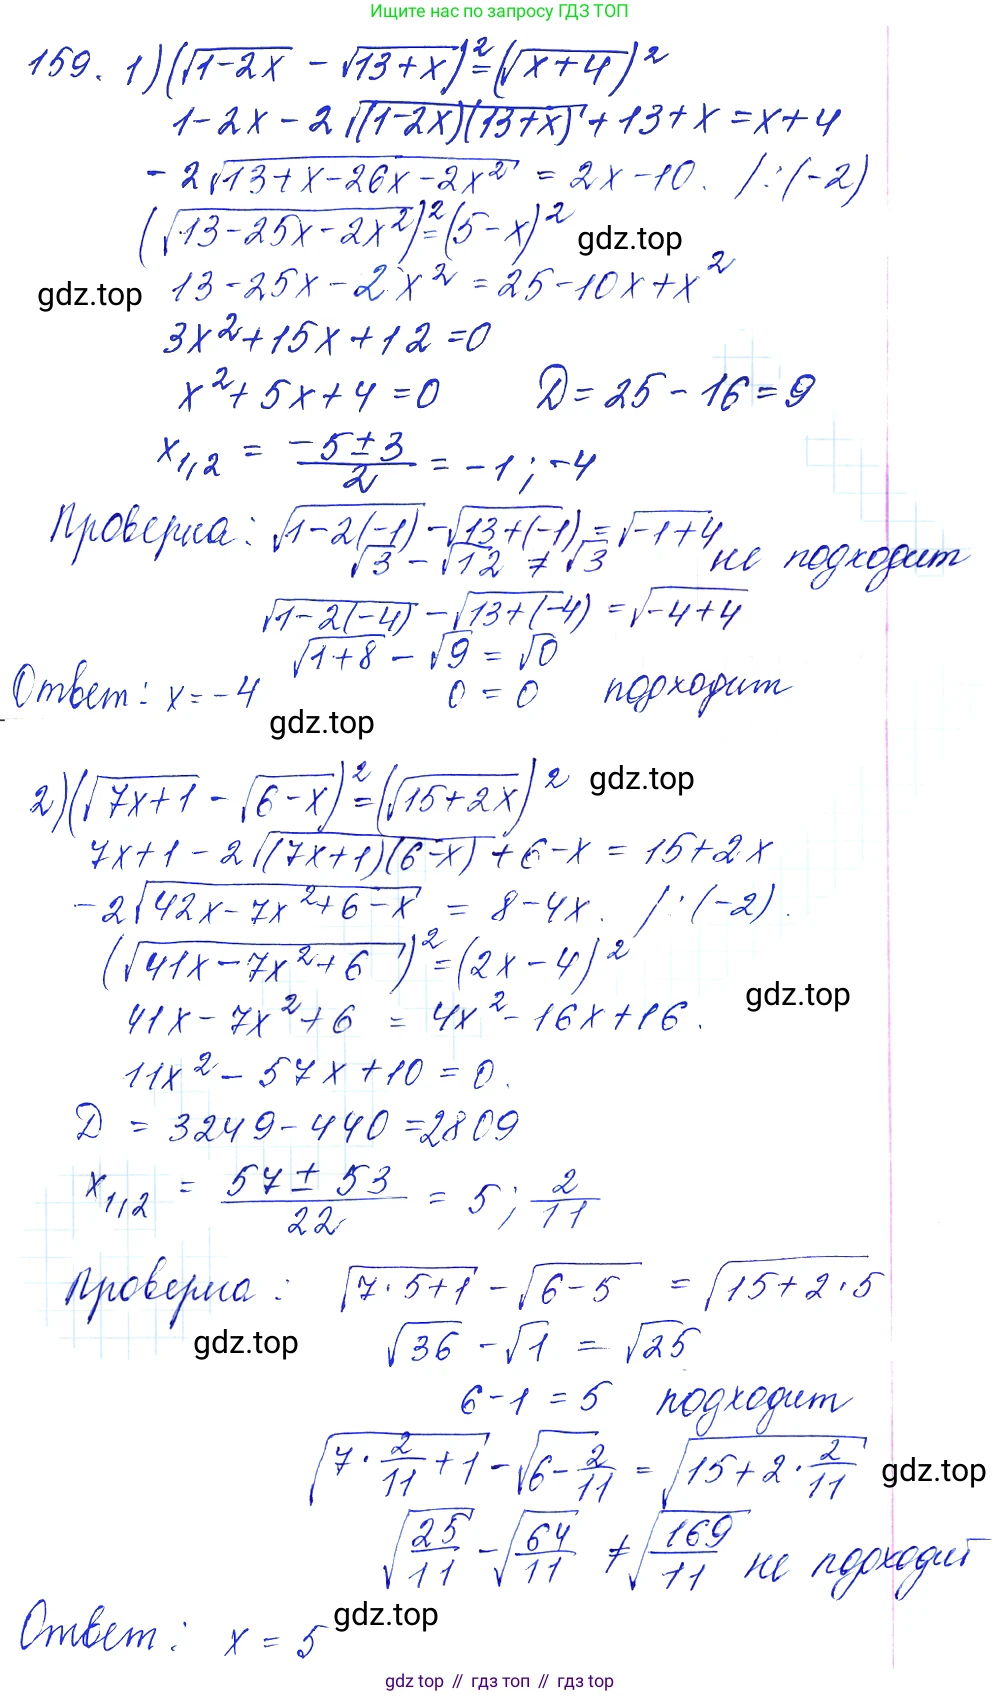 Ищите нас по запросу ГДЗ ТОП
159. 1) (√(1-2x) - √(13+x))² = (√(x+4))²
1-2x - 2√((1-2x)(13+x)) + 13+x = x+4
-2√(13+x-26x-2x²) = 2x-10. /:(-2)
(√(13-25x-2x²))² = (5-x)²
gdz.top
13-25x-2x² = 25-10x+x²
gdz.top
3x²+15x+12=0
x²+5x+4=0 D=25-16=9
x₁,₂ = (-5±3)/2 = -1; -4
Проверка: √(1-2(-1)) - √(13+(-1)) = √(-1+4)
√3 - √12 ≠ √3 не подходит
√(1-2(-4)) - √(13+(-4)) = √(-4+4)
√(1+8) - √9 = √0
Ответ: x=-4 0=0 подходит
gdz.top
2) (√(7x+1) - √(6-x))² = (√(15+2x))²
gdz.top
7x+1-2√((7x+1)(6-x)) + 6-x = 15+2x
-2√(42x-7x²+6-x) = 8-4x. /:(-2).
(√(41x-7x²+6))² = (2x-4)²
gdz.top
41x-7x²+6 = 4x²-16x+16.
11x²-57x+10=0.
D = 3249-440=2809
x₁,₂ = (57±53)/22 = 5; 2/11
Проверка: √(7·5+1) - √(6-5) = √(15+2·5)
gdz.top
√36 - √1 = √25
6-1=5 подходит
√(7·2/11+1) - √(6-2/11) = √(15+2·2/11)
gdz.top
√(25/11) - √(64/11) ≠ √(169/11) не подходит
Ответ: x=5
gdz.top
gdz top // гдз топ // gdz.top